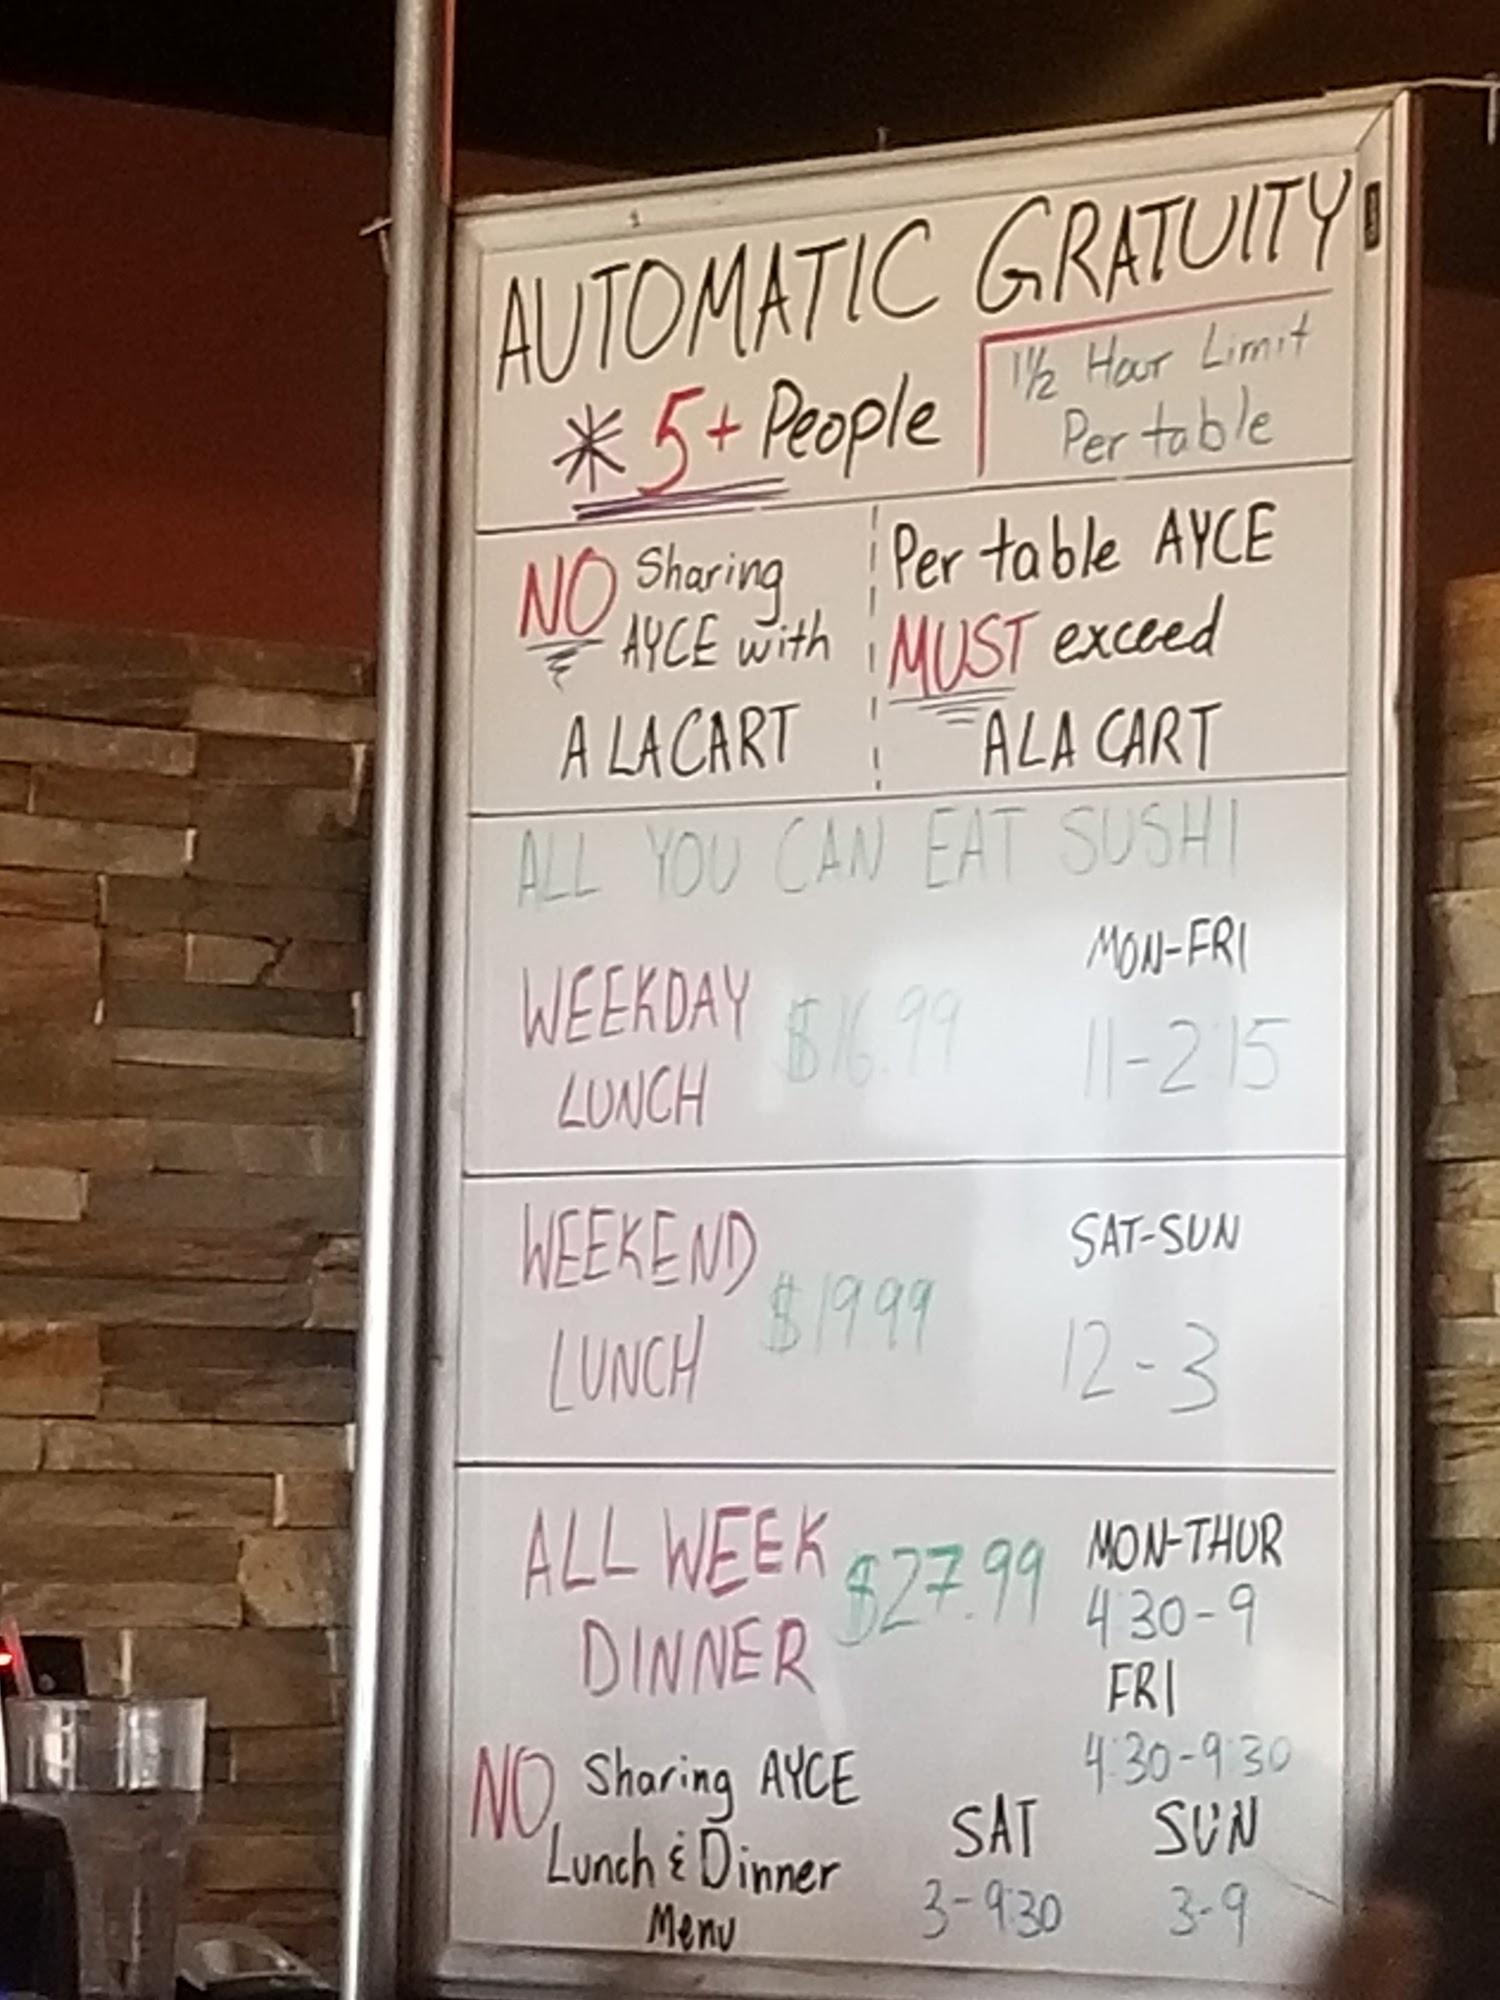 AUTOMATIC GRATUITY
* 5+ People
1½ Hour Limit
Per table
NO Sharing
AYCE with
A LA CART
Per table AYCE
MUST exceed
A LA CART
ALL YOU CAN EAT SUSHI
WEEKDAY
LUNCH
$16.99
MON-FRI
11-2:15
WEEKEND
LUNCH
$19.99
SAT-SUN
12-3
ALL WEEK
DINNER
$27.99
MON-THUR
4:30-9
FRI
4:30-9:30
SAT
3-9:30
SUN
3-9
NO Sharing AYCE
Lunch & Dinner
Menu